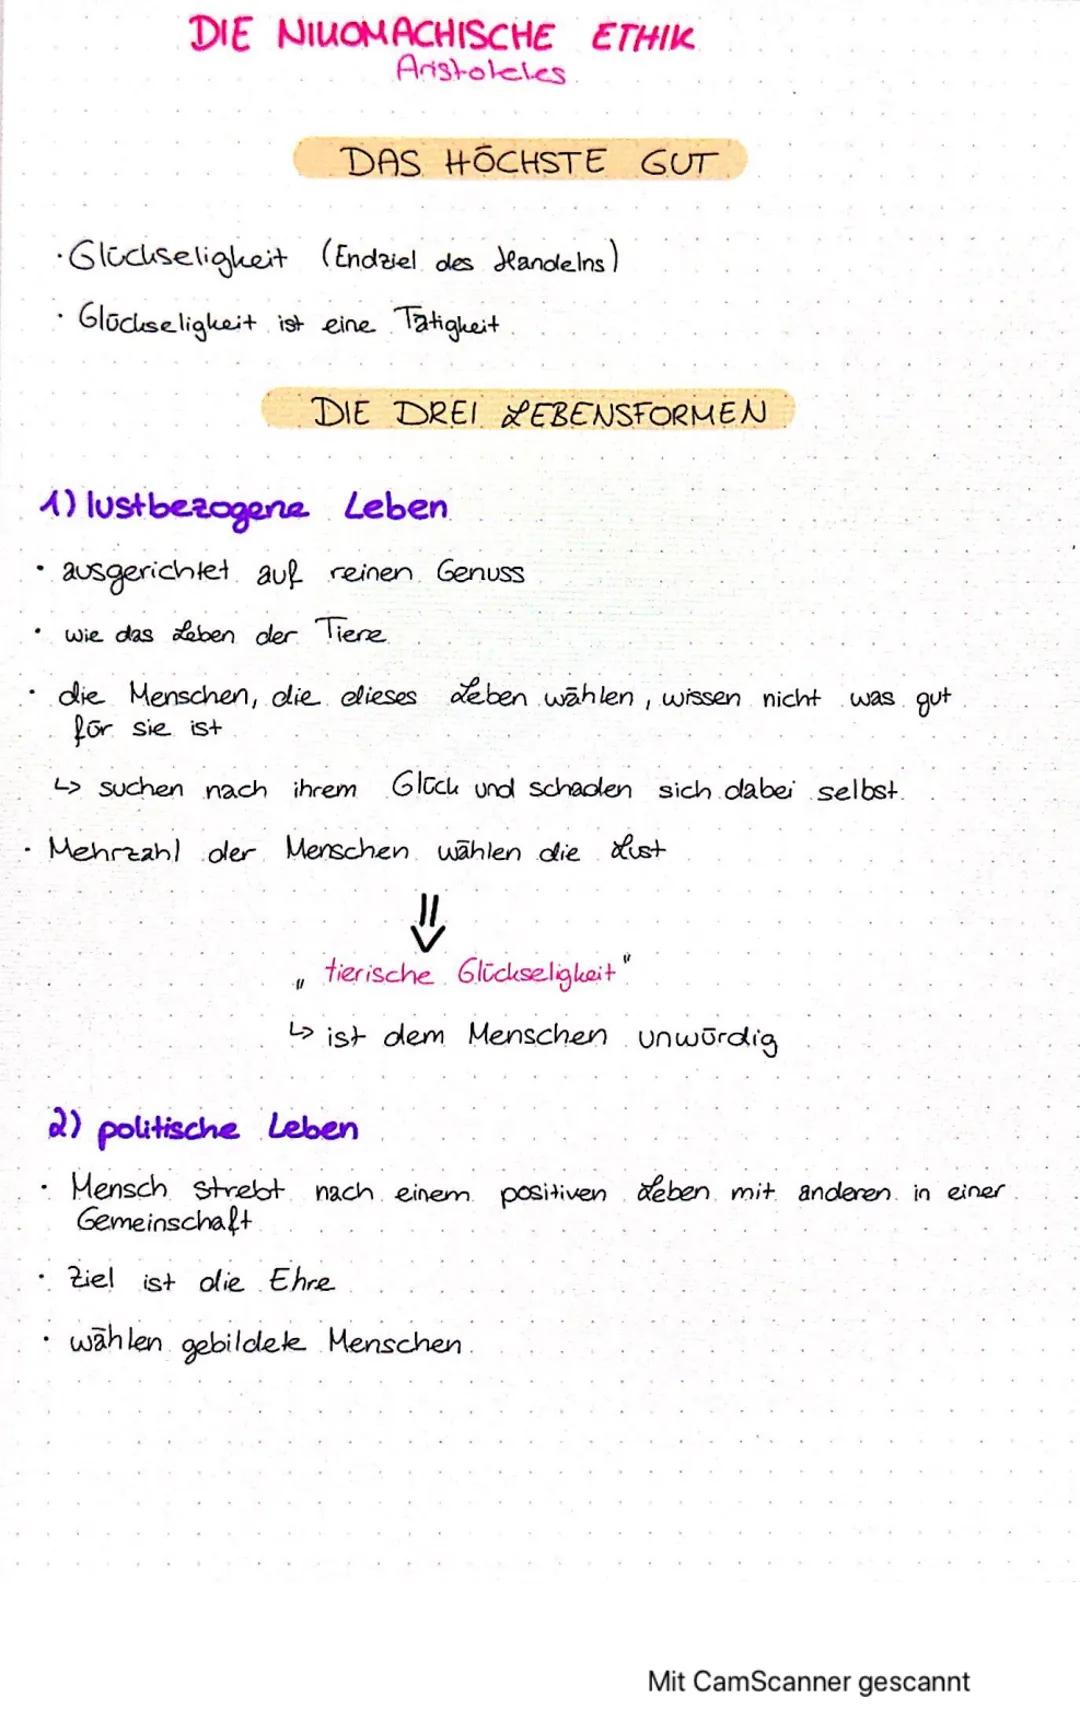 DIE NIKOMACHISCHE ETHIK
Aristoteles
DAS HÖCHSTE GUT
· Glückseligkeit (Endziel des Handelns)
· Glückseligkeit ist eine Tätigkeit
DIE DREI LEBENSFORMEN
1) lustbezogene Leben
· ausgerichtet auf reinen Genuss
· wie das Leben der Tiere
· die Menschen, die dieses Leben wählen, wissen nicht was gut
für sie ist
↳ suchen nach ihrem Glück und schaden sich dabei selbst.
· Mehrzahl der Menschen wählen die Lust
⇓
„tierische Glückseligkeit"
↳ ist dem Menschen unwürdig
2) politische Leben
· Mensch strebt nach einem positiven Leben mit anderen in einer
Gemeinschaft
· Ziel ist die Ehre
· wählen gebildete Menschen
Mit CamScanner gescannt